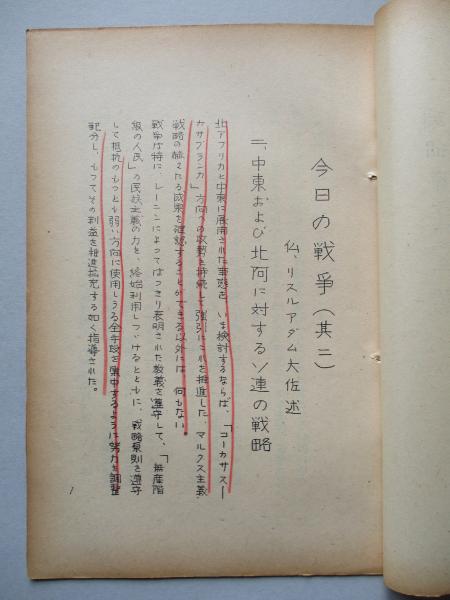 今日の戦争(其二)
仏、リスルアダム大佐述
二、中東および北阿に対するソ連の戦略
北アフリカと中東に展開された事態を、いま検討するならば、「コーカサス―
カサブランカ」方向への攻勢を持続して強引にこれを推進した、マルクス主義
戦略の絶えざる成果を確認することができる以外には何もない。
戦争は特に、レーニンによってはっきり表明された教義を遵守して、「無産階
級の人民」の民族主義の力を、終始利用しつづけるとともに、戦略原則を遵守
して抵抗のもっとも弱い方向に使用しうる全手段を集中するように努力を調整
配分し、もってその利益を推進拡充する如く指導された。
1